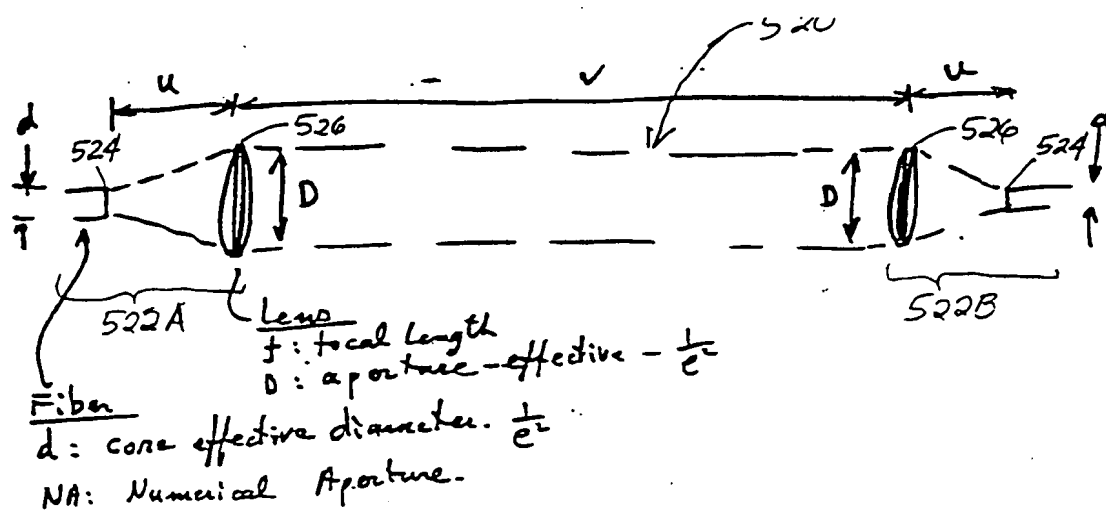 520
u
v
u
d
524
526
D
D
526
524
d
522A
522B
Lens
f: focal length
D: aporture - effective - 1/e²
Fiber
d: core effective diameter. 1/e²
NA: Numerical Aporture.